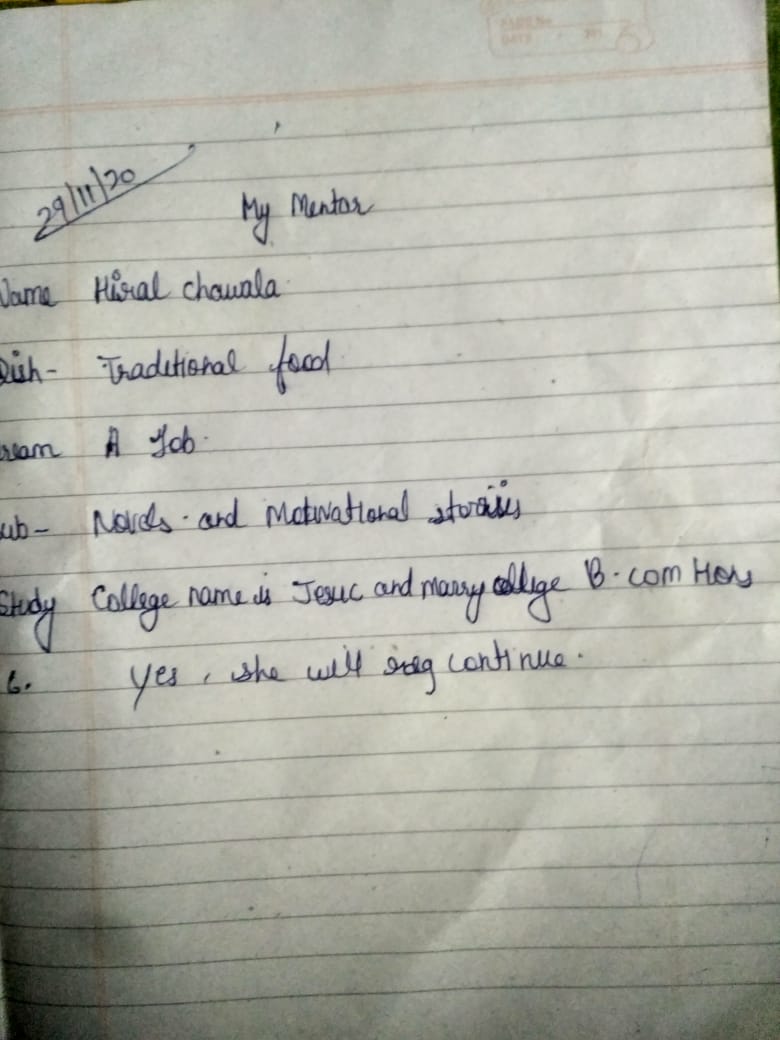 29/11/20
My Mentor
Name Hiral chawala
Dish- Traditional food
ream A Job.
ub- Novels. and Motivational stories
Study College name is Jesuc and marry college B.com Hons
6. Yes, she will reg continue.